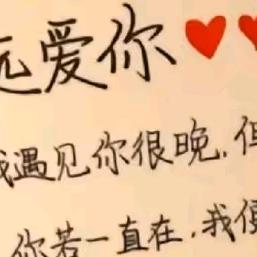 远爱你
我遇见你很晚,但
你若一直在,我便